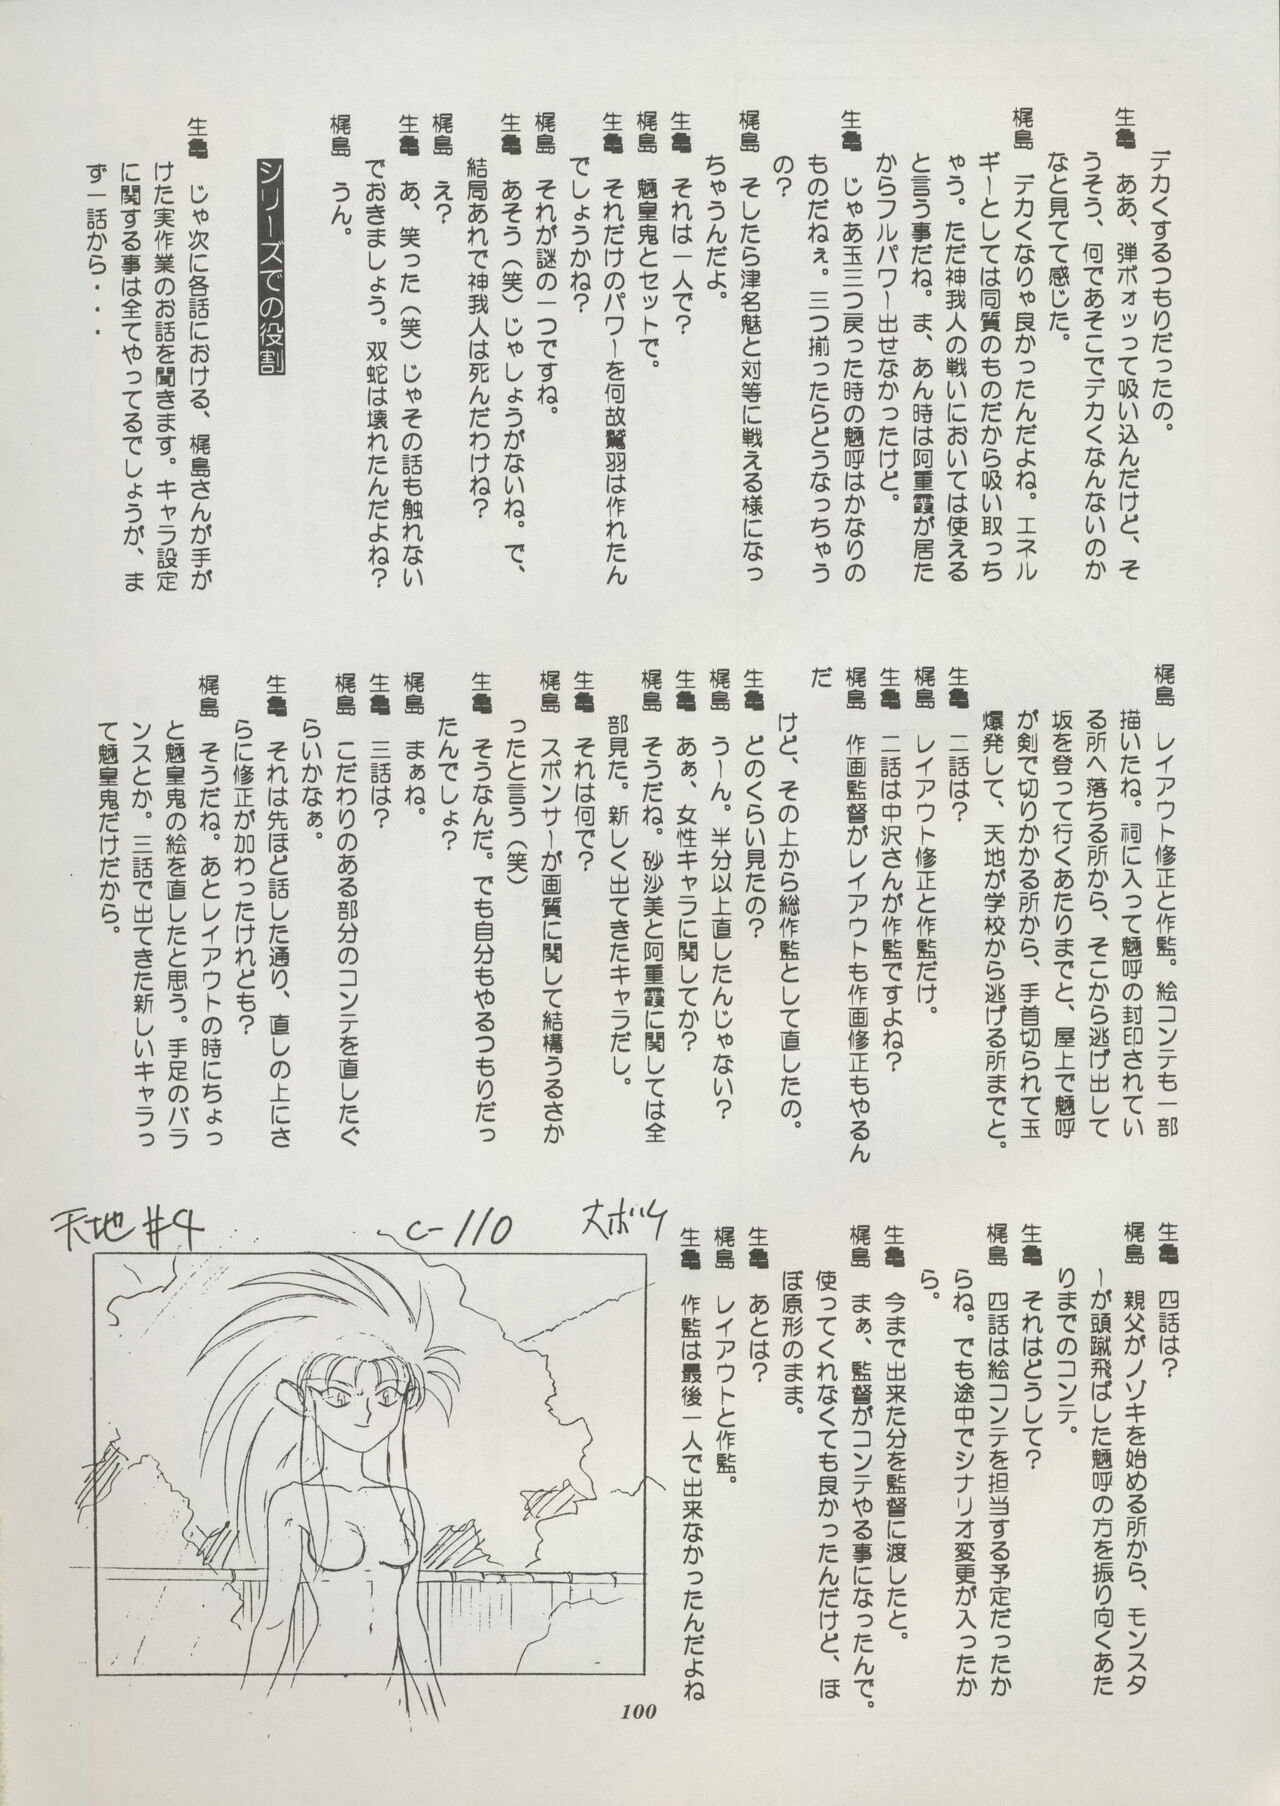 デカくするつもりだったの。
生亀　ああ、弾ボォッって吸い込んだけど、そ
うそう、何であそこでデカくなんないのか
なと見てて感じた。
梶島　デカくなりゃ良かったんだよね。エネル
ギーとしては同質のものだから吸い取っち
ゃう。ただ神我人の戦いにおいては使える
と言う事だね。ま、あん時は阿重霞が居た
からフルパワー出せなかったけど。
生亀　じゃあ玉三つ戻った時の魎呼はかなりの
ものだねぇ。三つ揃ったらどうなっちゃう
の？
梶島　そしたら津名魅と対等に戦える様になっ
ちゃうんだよ。
生亀　それは一人で？
梶島　魎皇鬼とセットで。
生亀　それだけのパワーを何故鷲羽は作れたん
でしょうかね？
梶島　それが謎の一つですね。
生亀　あそう（笑）じゃしょうがないね。で、
結局あれで神我人は死んだわけね？
梶島　え？
生亀　あ、笑った（笑）じゃその話も触れない
でおきましょう。双蛇は壊れたんだよね？
梶島　うん。
シリーズでの役割
生亀　じゃ次に各話における、梶島さんが手が
けた実作業のお話を聞きます。キャラ設定
に関する事は全てやってるでしょうが、ま
ず一話から・・・
梶島　レイアウト修正と作監。絵コンテも一部
描いたね。祠に入って魎呼の封印されてい
る所へ落ちる所から、そこから逃げ出して
坂を登って行くあたりまでと、屋上で魎呼
が剣で切りかかる所から、手首切られて玉
爆発して、天地が学校から逃げる所までと。
生亀　二話は？
梶島　レイアウト修正と作監だけ。
生亀　二話は中沢さんが作監ですよね？
梶島　作画監督がレイアウトも作画修正もやるん
だ
けど、その上から総作監として直したの。
生亀　どのくらい見たの？
梶島　うーん。半分以上直したんじゃない？
生亀　あぁ、女性キャラに関してか？
梶島　そうだね。砂沙美と阿重霞に関しては全
部見た。新しく出てきたキャラだし。
生亀　それは何で？
梶島　スポンサーが画質に関して結構うるさか
ったと言う（笑）
生亀　そうなんだ。でも自分もやるつもりだっ
たんでしょ？
梶島　まぁね。
生亀　三話は？
梶島　こだわりのある部分のコンテを直したぐ
らいかなぁ。
生亀　それは先ほど話した通り、直しの上にさ
らに修正が加わったけれども？
梶島　そうだね。あとレイアウトの時にちょっ
と魎皇鬼の絵を直したと思う。手足のバラ
ンスとか。三話で出てきた新しいキャラっ
て魎皇鬼だけだから。
生亀　四話は？
梶島　親父がノゾキを始める所から、モンスタ
ーが頭蹴飛ばした魎呼の方を振り向くあた
りまでのコンテ。
生亀　それはどうして？
梶島　四話は絵コンテを担当する予定だったか
らね。でも途中でシナリオ変更が入ったか
ら。
生亀　今まで出来た分を監督に渡したと。
梶島　まぁ、監督がコンテやる事になったんで。
使ってくれなくても良かったんだけど、ほ
ぼ原形のまま。
生亀　あとは？
梶島　レイアウトと作監。
生亀　作監は最後一人で出来なかったんだよね
天地#4
C-110
100